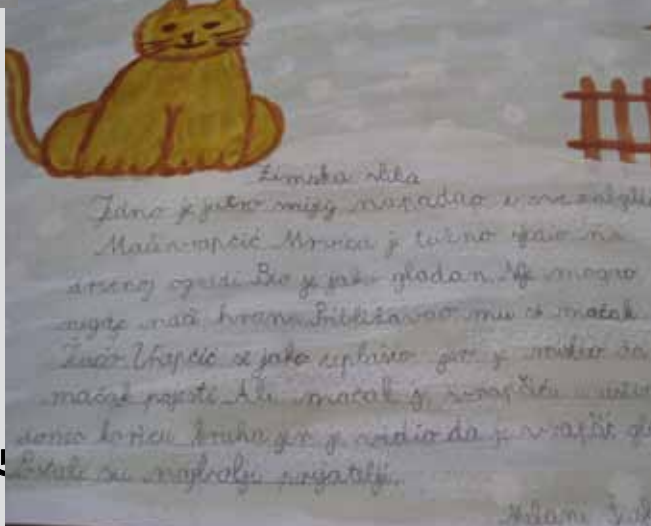 Zimska slika
Jedno je jutro snijeg napadao i sve
Mali vrapčić Mrvica je tužno na
drvenoj ogradi. Bio je jako gladan. Nije mogao
nigdje naći hranu. Približavao mu se mačak
Žućo. Vrapčić se jako uplašio jer je mislio da
mačak pojesti. Ali mačak je vrapčiću
donio koricu kruha jer je vidio da je vrapčić
Postali su najbolji prijatelji.